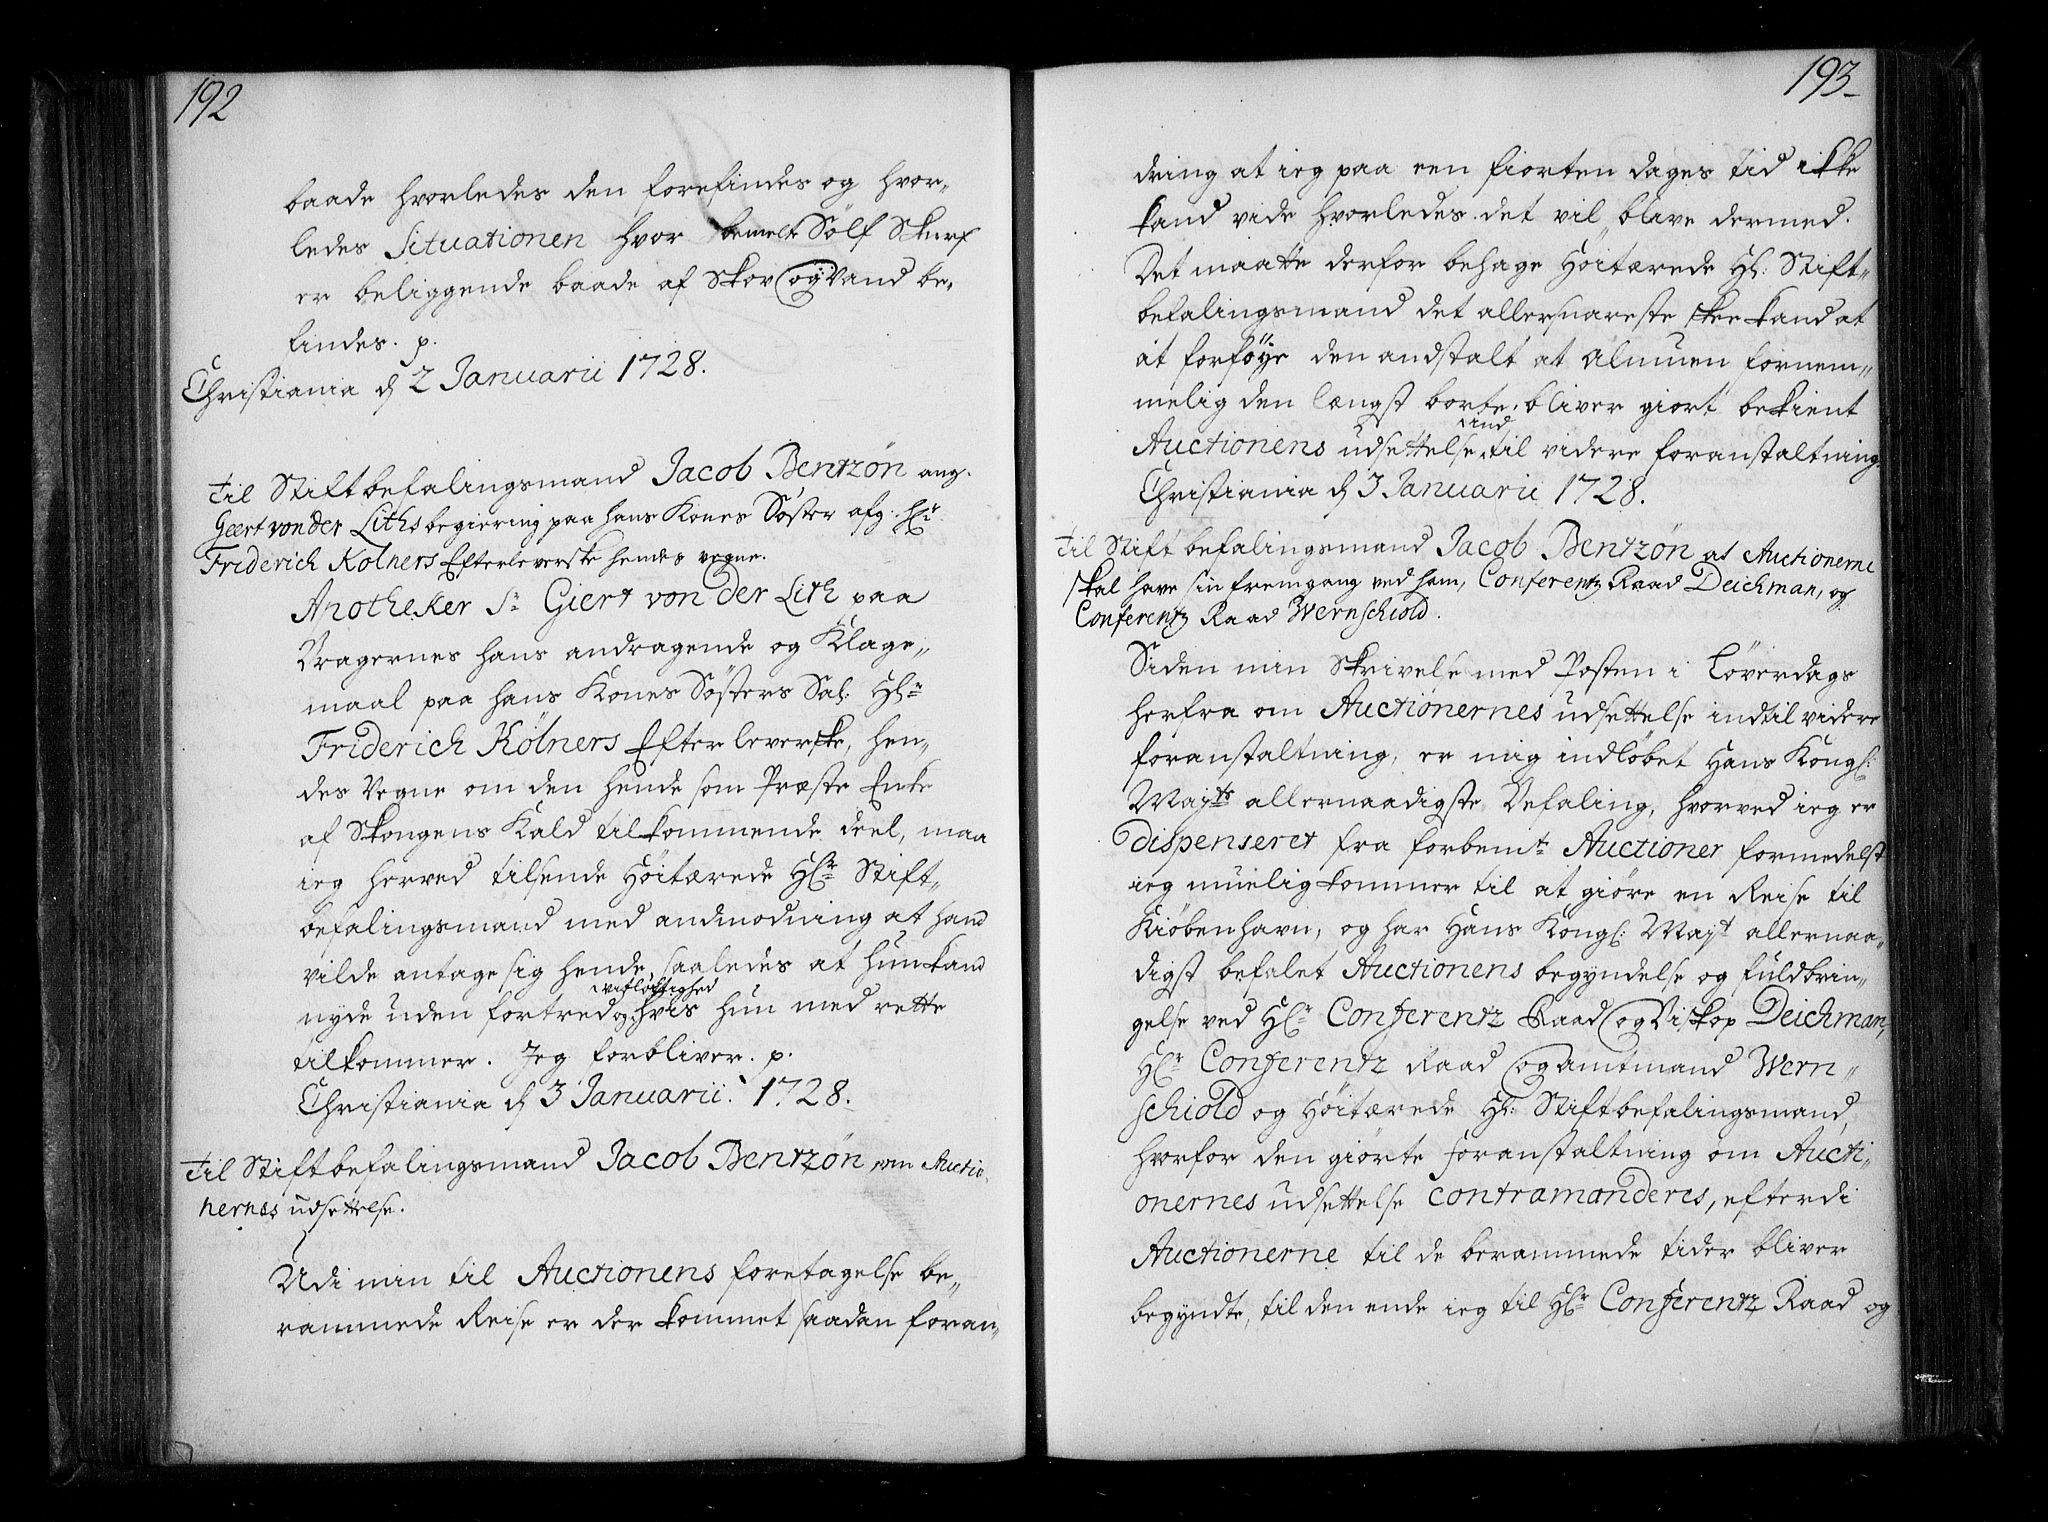 192
baade hvorledes den forefindes og hvor„
ledes Situationen hvor bemelte Sölf Skurf
er beliggende baade af Skov og Vand be„
findes. p.
Christiania d 2 Januarii 1728.
Til Stiftbefalingsmand Jacob Bentzön ang.
Geert von der Liths begiering paa hans Kones Söster afg. Hr
Friderich Kölners Efterleverske hendes vegne.
Apotheker Sr Giert von der Lith paa
Bragernes hans andragende og Klage„
maal paa hans Kones Sösters Sal. Hr
Friderich Kölners Efterleverske, hen„
des Vegne om den hende som Præste Enke
af Skongens Kald tilkommende deel, maa
ieg herved tilsende Höitærede Hr Stift„
befalingsmand med andmodning at hand
vilde antage sig hende, saaledes at hun kand
vidtlöftighed
nyde uden fortred og hvis hun med rette
tilkommer. Jeg forbliver. p.
Christiania d 3 Januarii. 1728.
Til Stiftbefalingsmand Jacob Bentzön om Auctio„
nernes udsettelse.
Udi min til Auctionens foretagelse be„
rammede Reise er der kommet saadan foran„
193
dring at ieg paa een fiorten dages tid ikke
kand vide hvorledes det vil blive dermed.
Det maatte derfor behage Höitærede Hr: Stift„
befalingsmand det allersnareste skee kand at
at forföye den andstalt at Almuen fornem„
melig den længst borte, bliver giort bekient
ind
Auctionens udsettelse til videre foranstaltning.
Christiania d 3 Januarii 1728.
Til Stiftbefalingsmand Jacob Bentzön at Auctionerne
skal have sin fremgang ved ham, Conferentz Raad Deichman, og
Conferentz Raad Wernschiold.
Siden min Skrivelse med Posten i Löverdags
herfra om Auctionernes udsettelse indtil videre
foranstaltning, er mig indlöbet Hans Kongl:
Mayts allernaadigste Befaling, hvorved ieg er
dispenseret fra forbemte Auctioner formedelst
ieg muelig kommer til at giöre en Reise til
Kiöbenhavn, og har Hans Kongl: Mayt allernaa„
digst befalet Auctionens begyndelse og fuldbrin„
gelse ved Hr Conferentz Raad og Biskop Deichman,
Hr Conferentz Raad og Amtmand Wern„
schiold og Höitærede Hr: Stiftbefalingsmand,
hvorfor den giorte foranstaltning om Aucti„
onernes udsettelse contramanderes, efterdi
Auctionerne til de berammede tider bliver
begyndte, til den ende ieg til Hr Conferentz Raad og